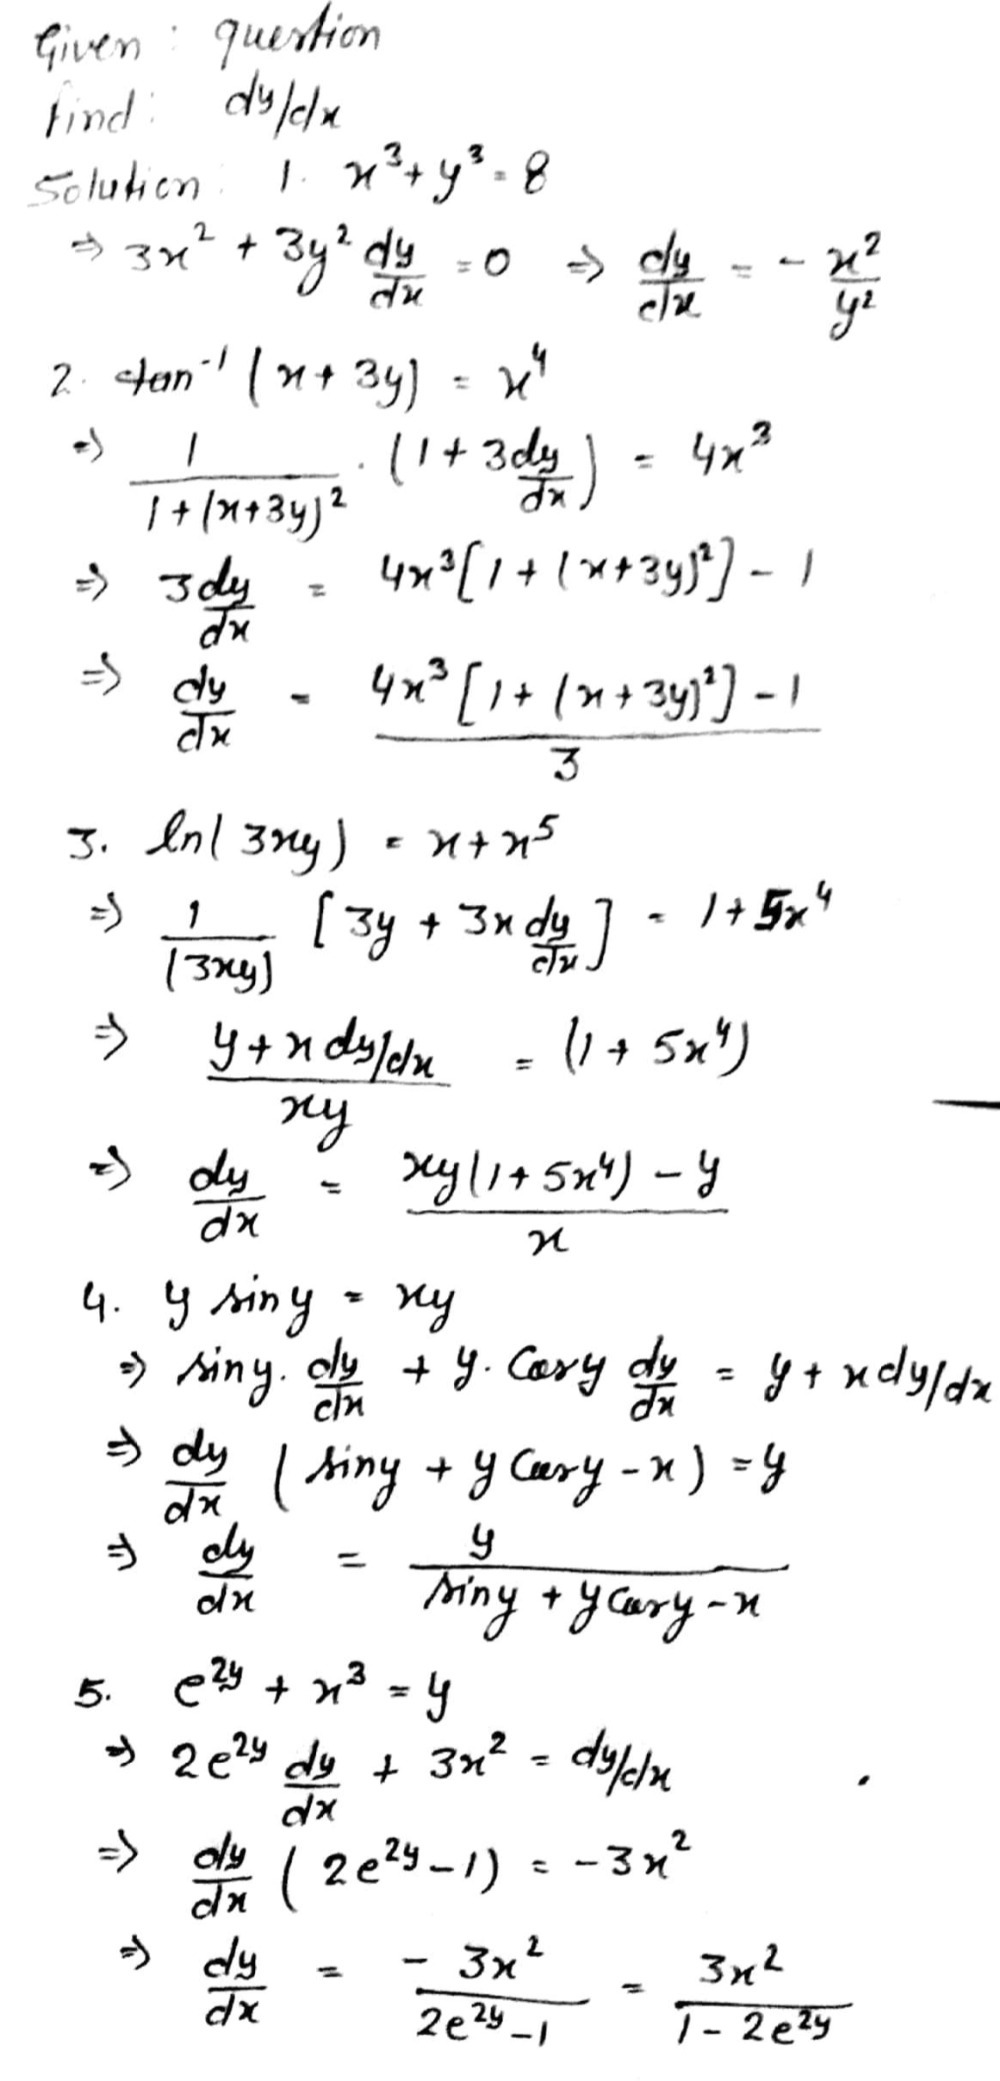 Given : question
Find : dy/dx
Solution : 1. x³ + y³ = 8
⇒ 3x² + 3y² dy/dx = 0 ⇒ dy/dx = - x²/y²
2. tan⁻¹ (x + 3y) = x⁴
⇒ 1/(1 + (x+3y)²) . (1 + 3dy/dx) = 4x³
⇒ 3dy/dx = 4x³[1 + (x+3y)²] - 1
⇒ dy/dx = (4x³[1 + (x+3y)²] - 1)/3
3. ln(3xy) = x + x⁵
⇒ 1/(3xy) [3y + 3x dy/dx] = 1 + 5x⁴
⇒ (y + x dy/dx)/xy = (1 + 5x⁴)
⇒ dy/dx = (xy(1 + 5x⁴) - y)/x
4. y siny = xy
⇒ siny. dy/dx + y. Cosy dy/dx = y + x dy/dx
⇒ dy/dx (siny + y Cosy - x) = y
⇒ dy/dx = y/(siny + y Cosy - x)
5. e²ʸ + x³ = y
⇒ 2e²ʸ dy/dx + 3x² = dy/dx
⇒ dy/dx (2e²ʸ - 1) = -3x²
⇒ dy/dx = -3x²/(2e²ʸ - 1) = 3x²/(1 - 2e²ʸ)